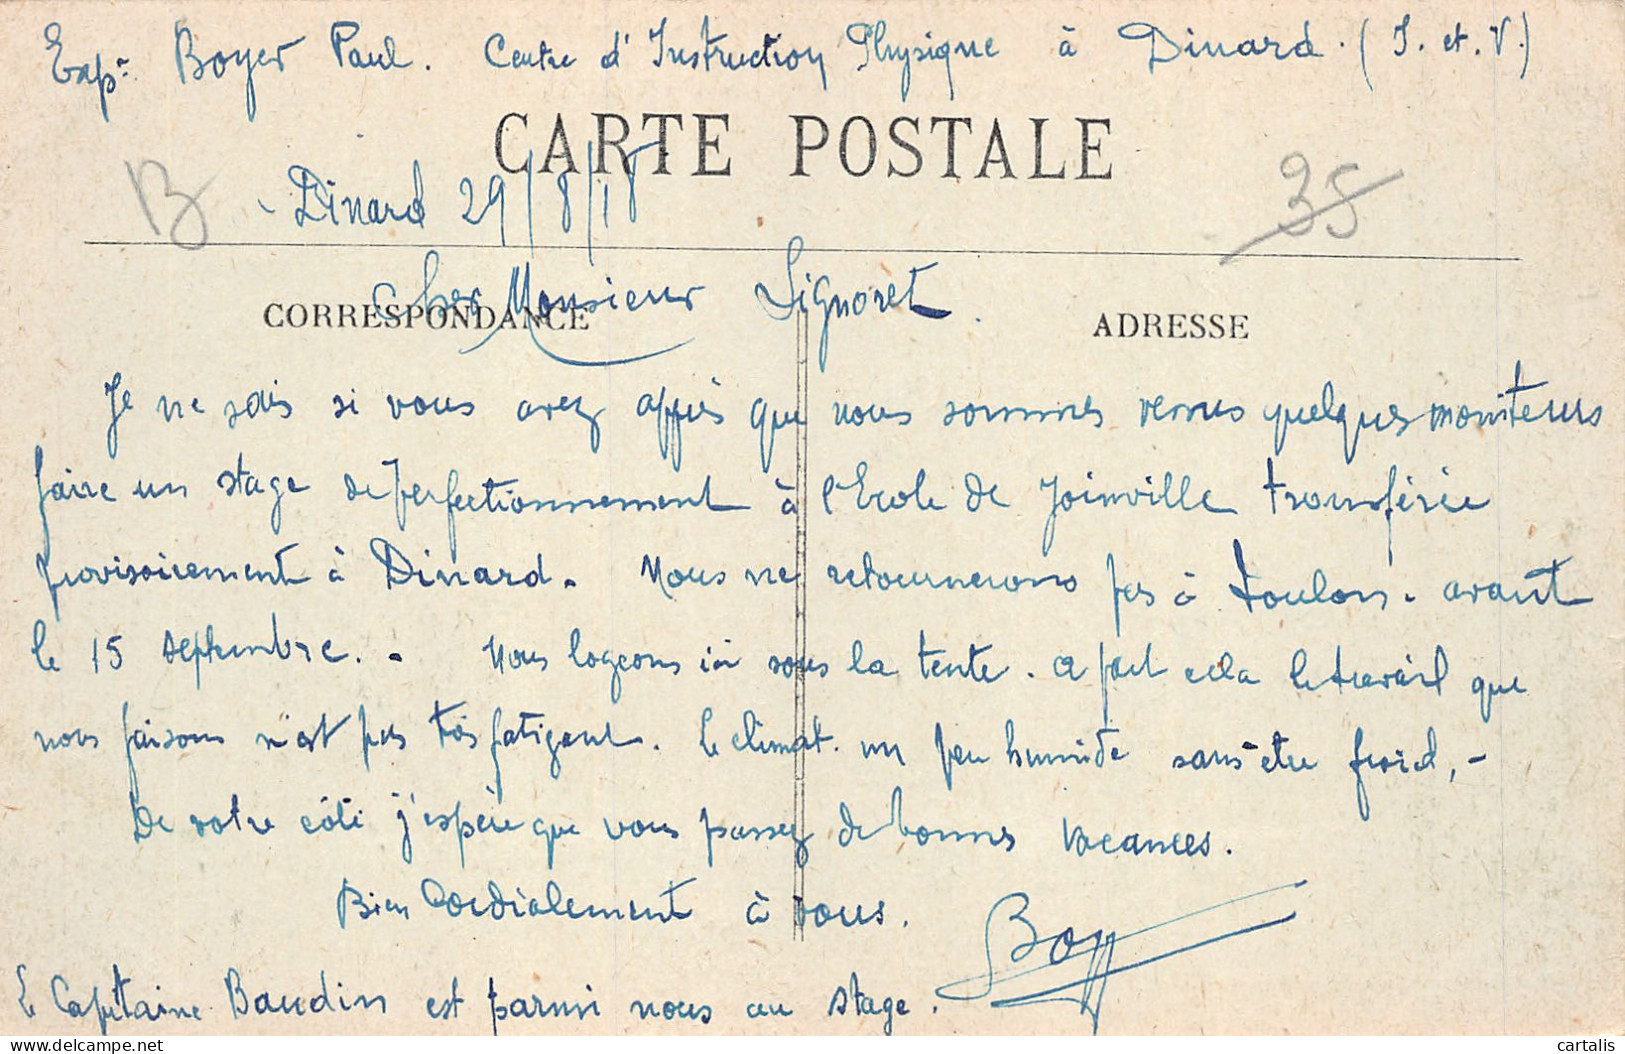 Expr Boyer Paul. Centre d'Instruction Physique à Dinard. (I. et. V.)
CARTE POSTALE
B
35
- Dinard 29/8/18
Cher Monsieur Signoret.
CORRESPONDANCE
ADRESSE
Je ne sais si vous avez appris que nous sommes venus quelques moniteurs
faire un stage de perfectionnement à l'Ecole de Joinville transférée
provisoirement à Dinard. Nous ne retournerons pas à Toulon. avant
le 15 septembre. - Nous logeons ici sous la tente. a part cela le travail que
nous faisons n'est pas très fatigant. le climat. un peu humide sans être froid, -
De votre côté j'espère que vous passez de bonnes vacances.
Bien Cordialement à vous.
Boy
le Capitaine Baudin est parmi nous au stage.
cartalis
delcampe.net